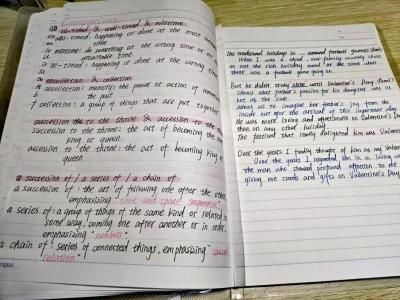 ill-timed, & well-timed & mistime
ill-timed: happening or done at the most
time
mistime: do something at the wrong time or an
time
ill-timed: happening or done at the wrong time
recollection & collection
recollection: memory; the power or action of
the past
collection: a group of things that are put together
succession to the throne & accession to the
succession to the throne: the act of becoming the
king or queen
accession to the throne: the act of becoming king or
queen
a succession of / a series of / a chain of:
a succession of: the act of following one after the other,
emphasizing "time and space sequence"
a series of: a group of things of the same kind or related in
some way, coming one after another or in order,
emphasizing "numbers"
a chain of: series of connected things, emphasizing "causal
relation"
The traditional holidays in around football games.
When I was a child, our family usually
to eat the rich holiday meal at the same
there was a football game going on.
But he didn't truly shine until Valentine's Day.
that father's passion for his daughter was as
hot as the sun.
us to imagine her father's joy from the
inside out after the arrival of this important day
He was more loving and affectionate on Valentine's Day
than on any other holiday.
The festival that really delighted him was Valentine's
Over the years I fondly thought of him as my Valentine
Over the years I regarded him in a loving way
the man who showed profound affection to me
giving me cards and gifts on Valentine's Day.